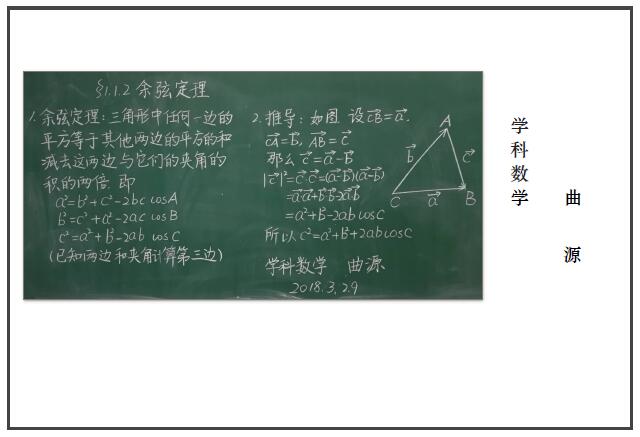 §1.1.2 余弦定理
1. 余弦定理:三角形中任何一边的
平方等于其他两边的平方的和
减去这两边与它们的夹角的
积的两倍. 即
a²=b²+c²-2bc cosA
b²=c²+a²-2ac cosB
c²=a²+b²-2ab cosC
(已知两边和夹角计算第三边)
2. 推导:如图 设 C⃗B=a⃗.
C⃗A=b⃗, A⃗B=c⃗
那么 c⃗=a⃗-b⃗
|c⃗|²=c⃗·c⃗=(a⃗-b⃗)(a⃗-b⃗)
=a⃗·a⃗+b⃗·b⃗-2a⃗b⃗
=a²+b²-2ab cosC
所以 c²=a²+b²+2ab cosC
学科数学 曲源
2018.3.29
A
b⃗
c⃗
C
a⃗
B
学科数学
曲源